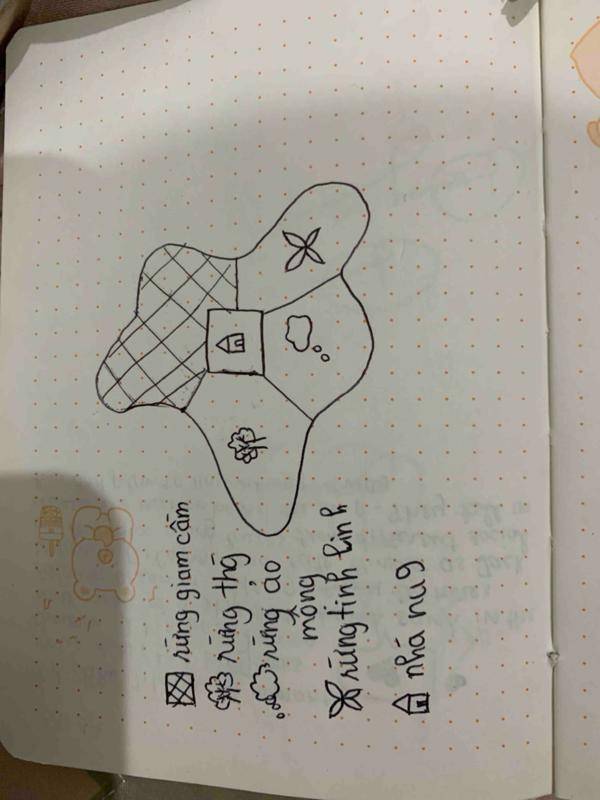 rừng giam cầm
rừng thg
rừng ảo
mộng
rừng tinh linh
nhà nug